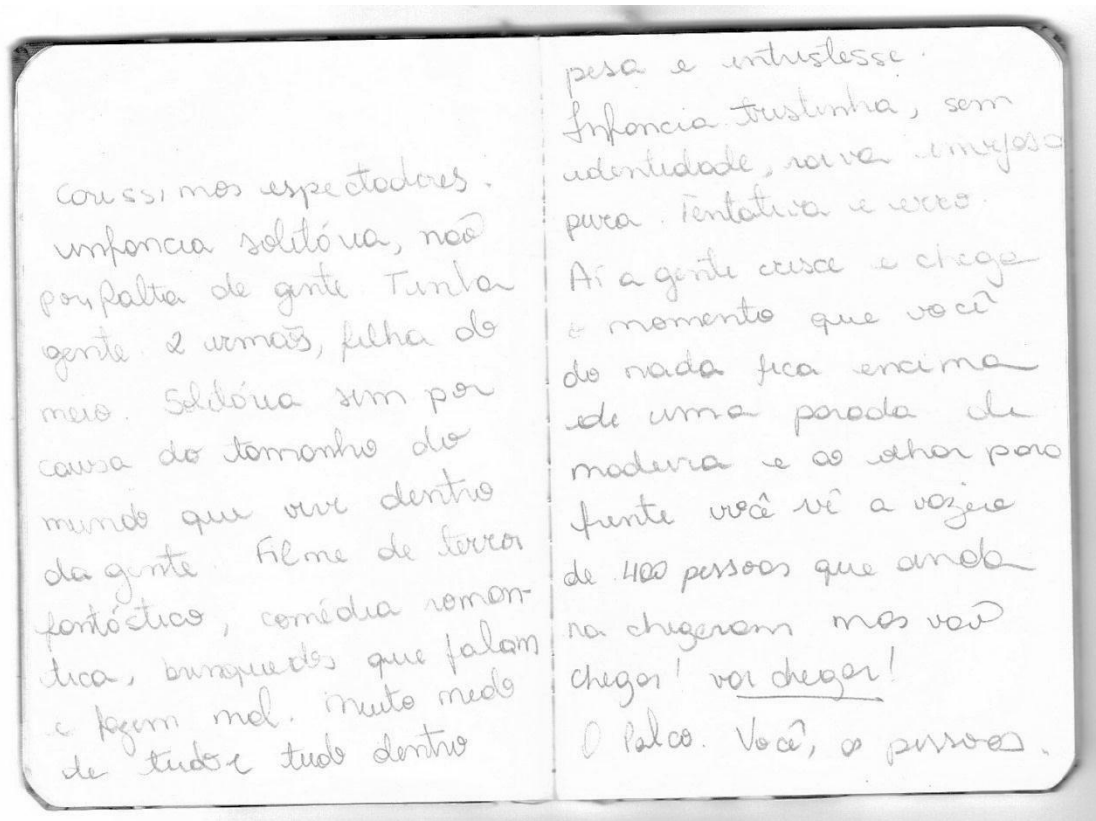 carissimos espectadores.
infancia solitária, não
por falta de gente. Tinha
gente 2 irmãs, filha do
meio. Solitária sim por
causa do tamanho do
mundo que vive dentro
da gente. Filme de terror
fantástico, comédia roman-
tica, brinquedos que falam
e fazem mal. Muito medo
de tudo e tudo dentro
pesa e entristesse.
Infancia tristinha, sem
identidade, raiva invejosa
pura. Tentativa e erro.
Aí a gente cresce e chega
o momento que você
do nada fica encima
de uma parada de
madeira e ao olhar para
frente você vê a
de 400 pessoas que ainda
na chegaram mas vão
chegar! vai chegar!
O Palco. Você, as pessoas.